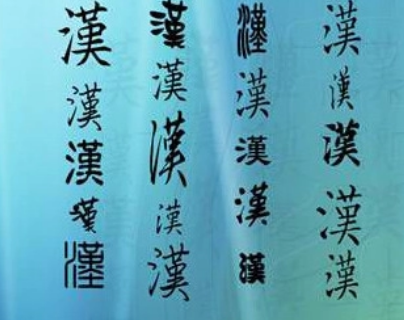 漢漢漢漢漢
漢漢漢漢漢
漢漢漢漢漢
漢漢漢漢漢